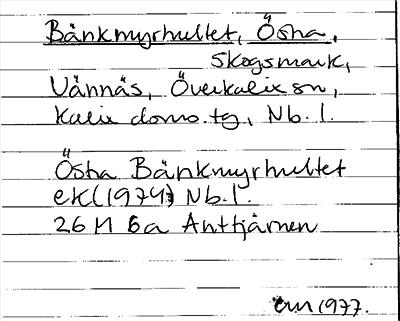 Bänkmyrhultet, Östra,
Skogsmark,
Vännäs, Överkalix sn,
Kalix doms.tg, Nb. l.
Östra Bänkmyrhultet
ek (1974) Nb. l.
26 M 6a Anttjärnen
1977.